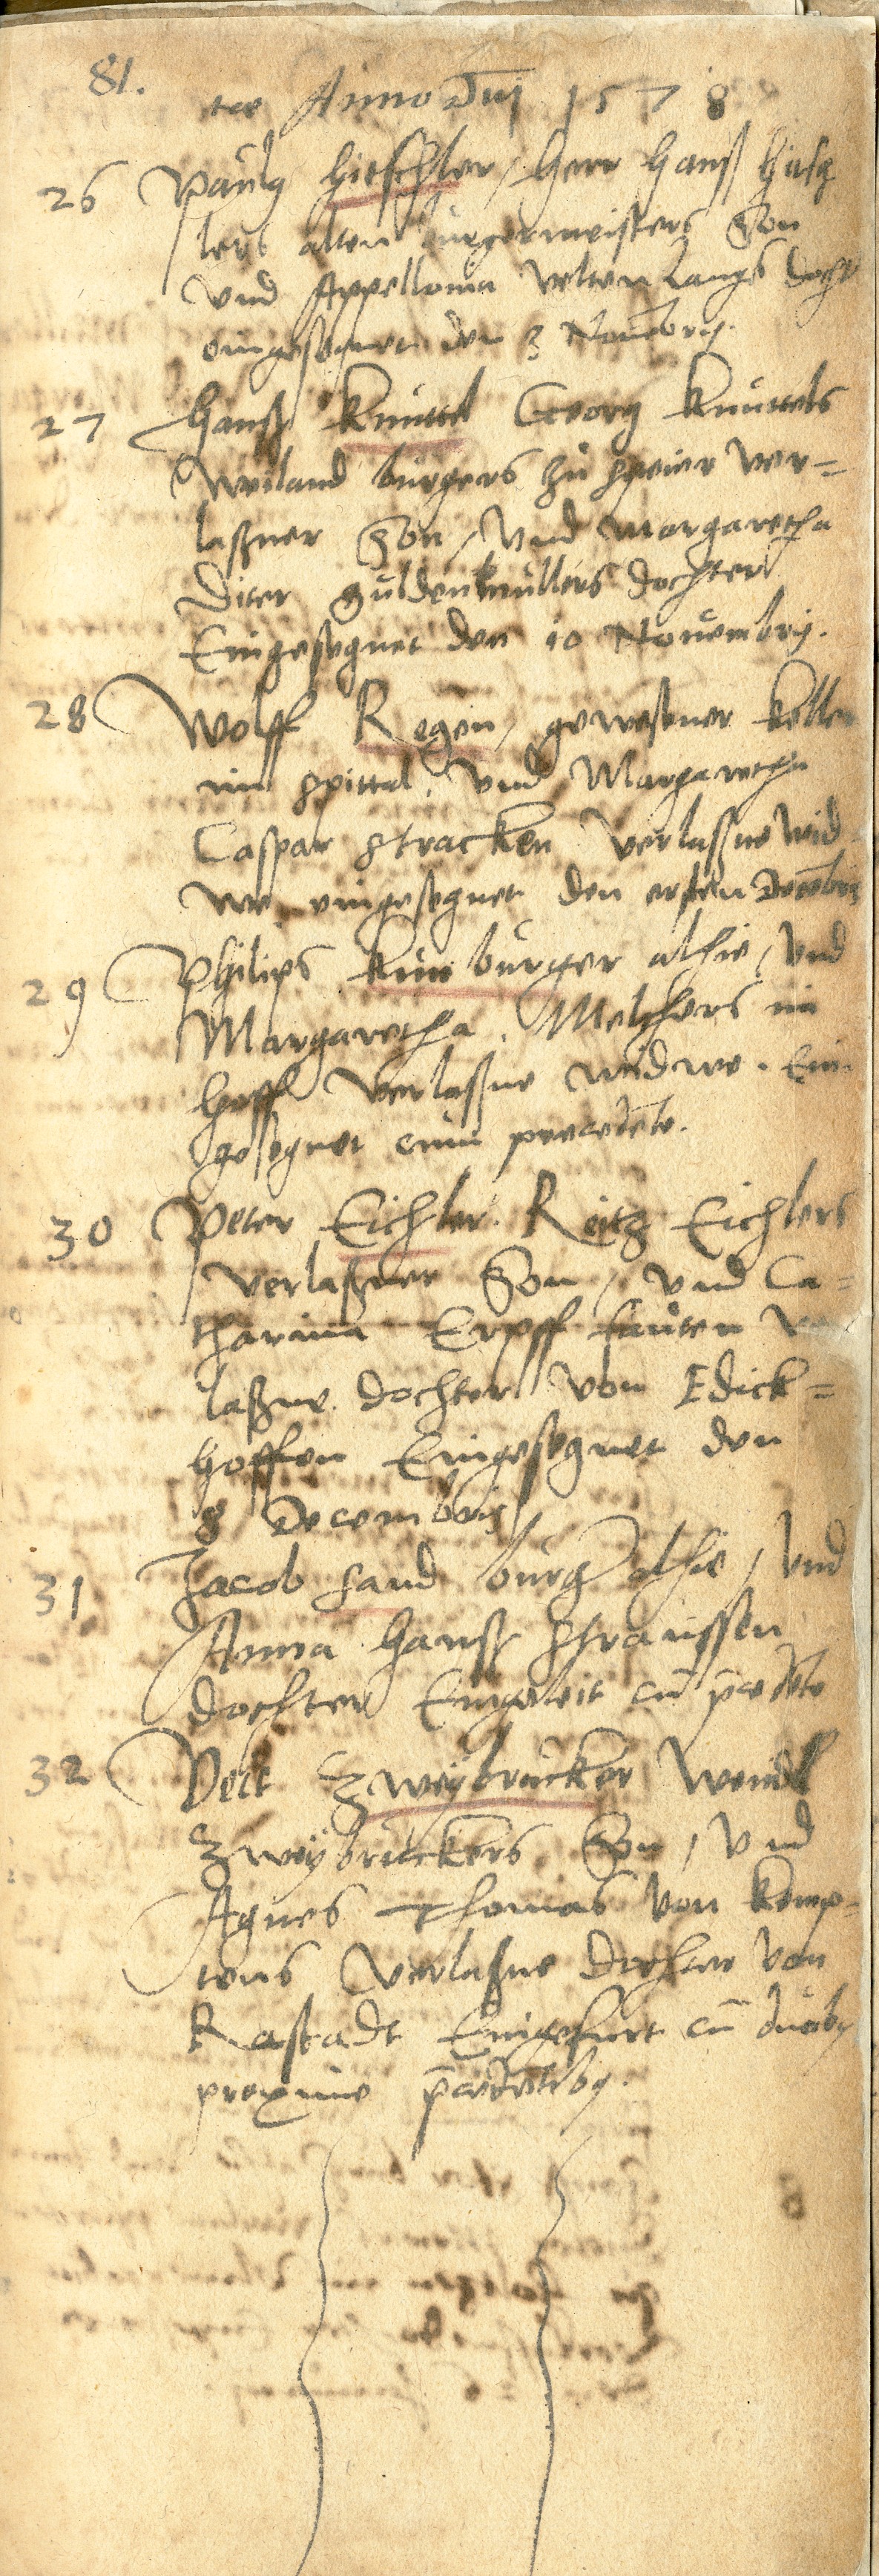 81.
Anno Dni 1578
26 Paulß Hitschler, herr Hanß Hitsch
lers alten burgermeisters Son
vnd Appollonia Velten Langs docht
eingesegnet den 3 Nouebris.
27 Hanß Knuttel Georg Knuttels
weiland burgers zu Speier ver=
laßner Son, vnd Margaretha
Diter guldenmullers dochter
Eingesegnet den 10 Nouembris.
28 Wolff Regen, gewesener keller
im Spittal, vnd Margaretha
Caspar Stracken verlaßne wid
we eingesegnet den ersten Decebris
29 Philips burger alhie, vnd
Margaretha, Melchers im
hoff verlaßne widwe. Ein
gesegnet cum precedete.
30 Peter Eichler. Reitz Eichlers
verlaßner Son, vnd Ca=
tharina Erpff fauten ver
laßne dochter von Edick=
hoffen Eingesegnet den
8 Decembris
31 Jacob Sand burger alhie, vnd
Anna Hanß Straussen
dochter Eingeleit cu pcedete
32 Velt Zweybrucker Wendl
Zweybruckers Son, vnd
Agnes Thomas von Kemp=
tens verlaßne dochter von
Rastadt Eingefurt cu duoby
proxime pcedetiby.